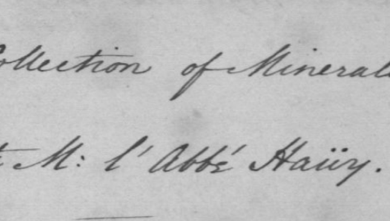 Collection of Minerals
M: l'Abbé Haüy.